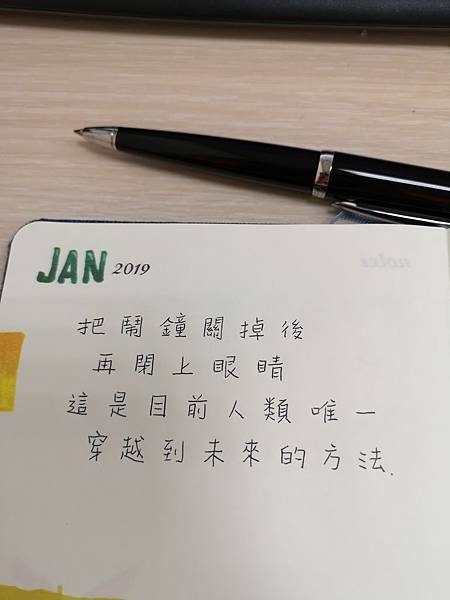 JAN 2019
把鬧鐘關掉後
再閉上眼睛
這是目前人類唯一
穿越到未來的方法.
notes